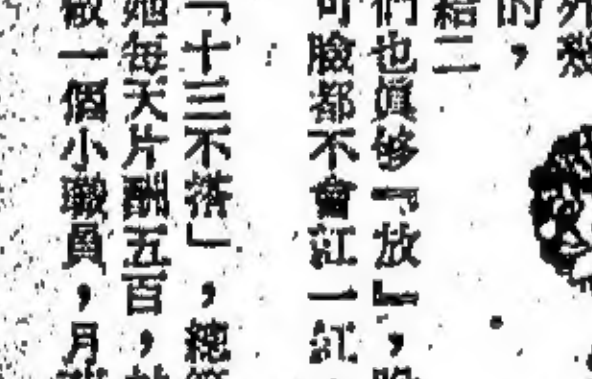 的，
給二
們也真够『放』，
可臉都不會江一紅
「十三不搭」，總
她每天片酬五百，
做一個小職員，月